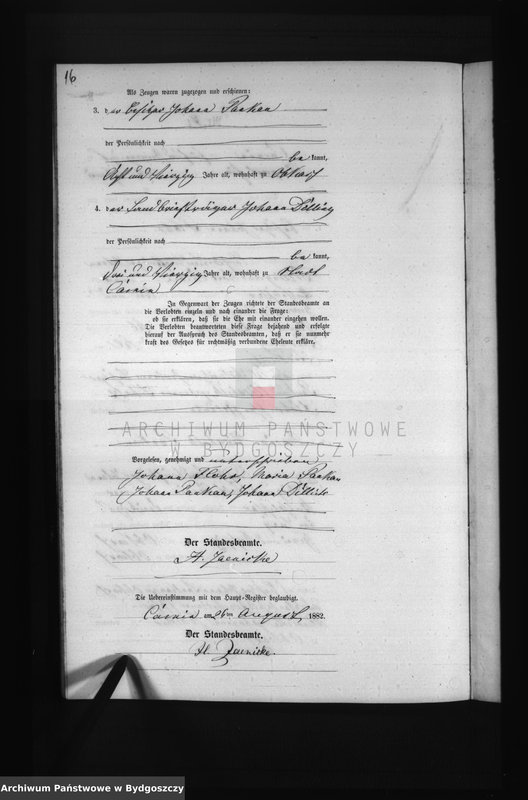 16
Als Zeugen waren zugezogen und erschienen:
3. der Besitzer Johann Pankau
der Persönlichkeit nach
be kannt,
Acht und Vierzig Jahre alt, wohnhaft zu
4. der Landbriefträger Johann
der Persönlichkeit nach
be kannt,
Drei und Vierzig Jahre alt, wohnhaft zu Stadt
In Gegenwart der Zeugen richtete der Standesbeamte an
die Verlobten einzeln und nach einander die Frage:
ob sie erklären, daß sie die Ehe mit einander eingehen wollen.
Die Verlobten beantworteten diese Frage bejahend und erfolgte
hierauf der Ausspruch des Standesbeamten, daß er sie nunmehr
kraft des Gesetzes für rechtmäßig verbundene Eheleute erkläre.
ARCHIWUM PAŃSTWOWE
W BYDGOSZCZY
Vorgelesen, genehmigt und unterschrieben
Johann Maria Pankau
Johann Pankau, Johann
Der Standesbeamte.
A. Jaenicke
Die Uebereinstimmung mit dem Haupt-Register beglaubigt.
am 26ten August 1882.
Der Standesbeamte.
A. Jaenicke.
Archiwum Państwowe w Bydgoszczy